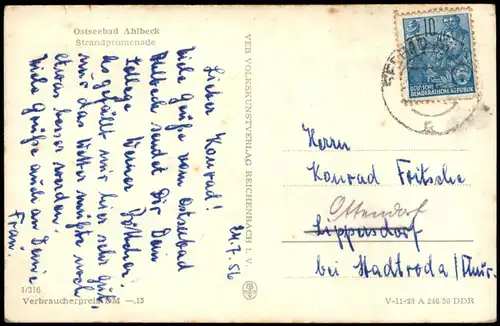 Ostseebad Ahlbeck
Strandpromenade
24.7.56
Lieber Konrad!
Viele Grüße vom Ostseebad
Ahlbeck sendet Dir Dein
Kollege Werner
Es gefällt mir hier sehr gut,
das Wetter müßte noch
etwas besser werden.
Viele Grüße auch an Deine
Frau.
1/316
Verbraucherpreis DM —.15
VEB VOLKSKUNSTVERLAG REICHENBACH i. V.
10
DEUTSCHE
DEMOKRATISCHE REPUBLIK
Herrn
Konrad Fritsche
Ottendorf
Lippersdorf
bei Stadtroda/Thür.
V-11-28 A 246/56 DDR